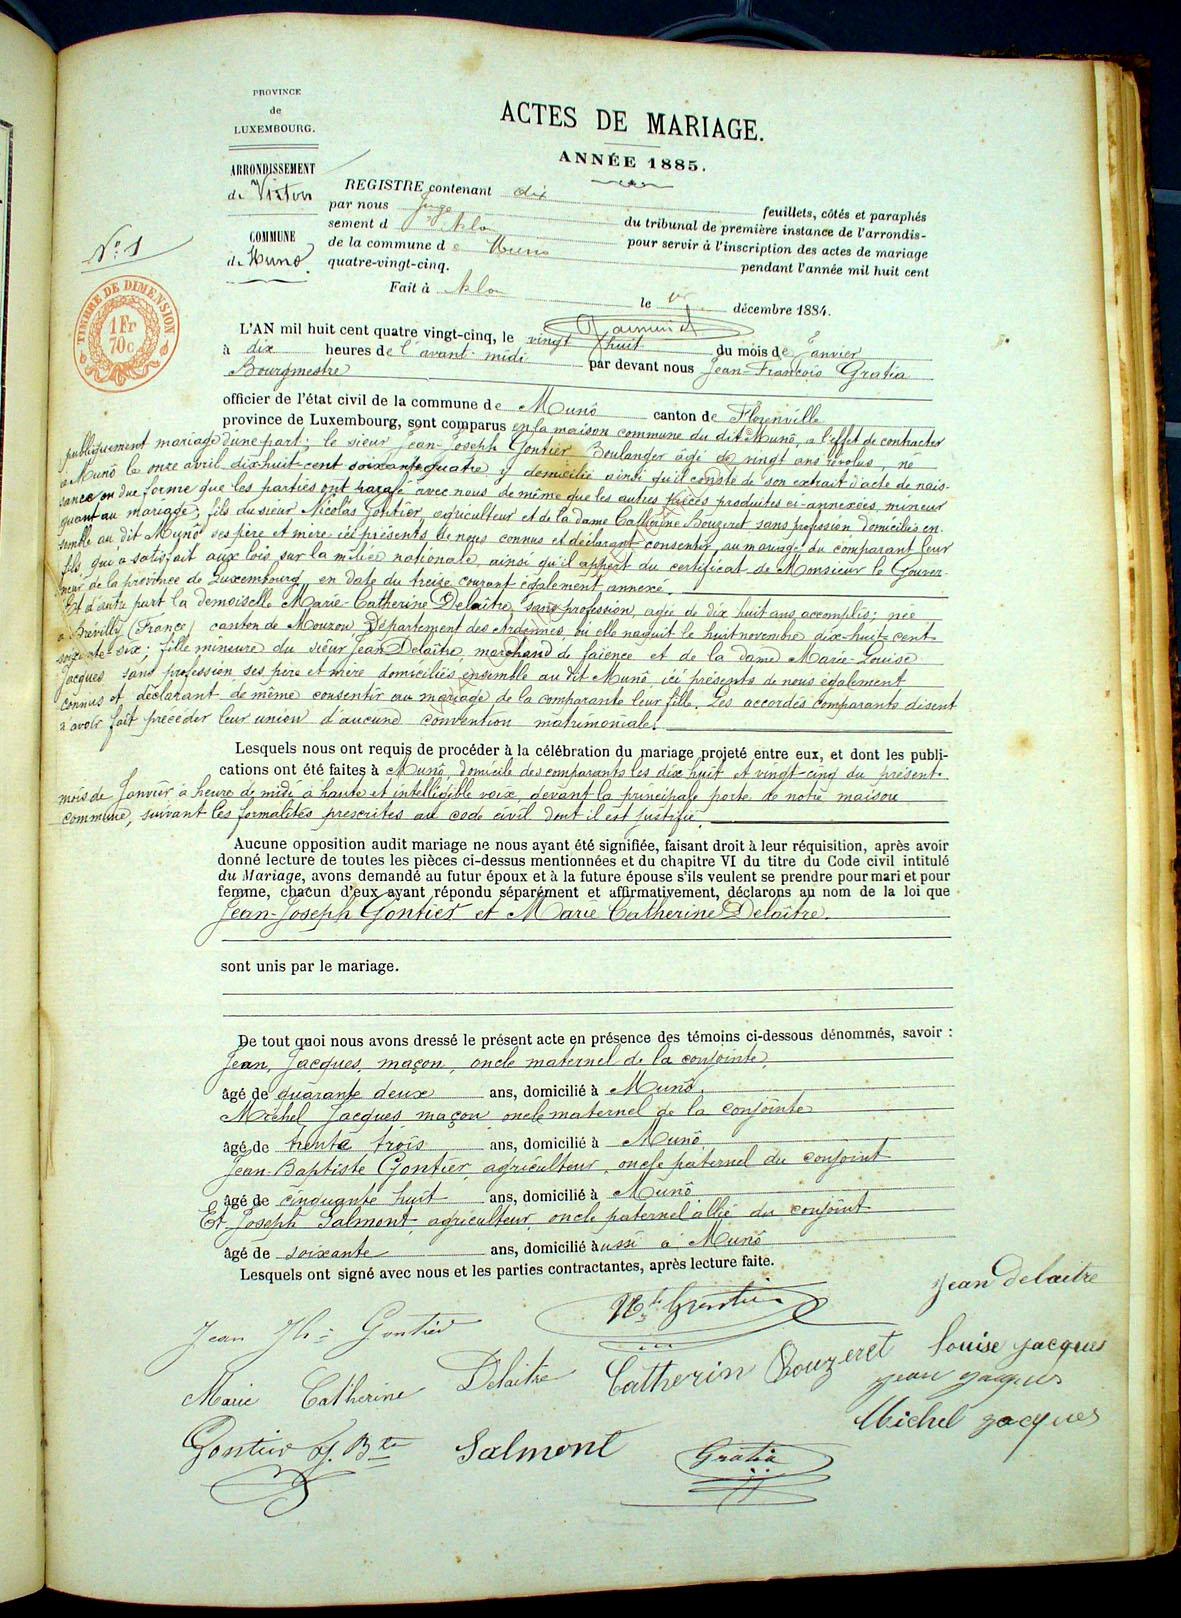 PROVINCE
de
LUXEMBOURG.
ARRONDISSEMENT
de Virton
COMMUNE
de Muno.
N° 1
TIMBRE DE DIMENSION
1 Fr
70c
ACTES DE MARIAGE.
ANNÉE 1885.
REGISTRE contenant dix feuillets, côtés et paraphés
par nous Juge du tribunal de première instance de l'arrondis-
sement d'Arlon pour servir à l'inscription des actes de mariage
de la commune de Muno pendant l'année mil huit cent
quatre-vingt-cinq.
Fait à Arlon le décembre 1884.
L'AN mil huit cent quatre vingt-cinq, le vingt huit du mois de Janvier
à dix heures de l'avant-midi par devant nous Jean-François Gratia
Bourgmestre
officier de l'état civil de la commune de Munô canton de Florenville
province de Luxembourg, sont comparus en la maison commune du dit Munô, à l'effet de contracter
publiquement mariage d'une part; le sieur Jean-Joseph Gontier Boulanger âgé de vingt ans révolus, né
à Munô le onze avril dix-huit-cent soixante quatre y domicilié ainsi qu'il conste de son extrait d'acte de nais-
sance en due forme que les parties ont parafé avec nous de même que les autres pièces produites ci-annexées, mineur
quant au mariage; fils du sieur Nicolas Gontier, agriculteur et de la dame Catherine Bouzeret sans profession domiciliés en-
semble au dit Munô ses père et mère ici présents de nous connus et déclarant consentir au mariage du comparant leur
fils, qui a satisfait aux lois sur la milice nationale, ainsi qu'il appert du certificat de Monsieur le Gouver-
neur de la province de Luxembourg en date du treize courant également annexé.
Et d'autre part la demoiselle Marie-Catherine Delaître, sans profession, agée de dix huit ans accomplis; née
à Brévilly (France) canton de Mouzon Département des Ardennes, où elle naquit le huit novembre dix-huit-cent-
soixante-six; fille mineure du sieur Jean Delaître marchand de faïence et de la dame Marie-Louise
Jacques sans profession ses père et mère domiciliés ensemble au dit Munô ici présents de nous également
connus et déclarant de même consentir au mariage de la comparante leur fille. Les accordés comparants disent
n'avoir fait précéder leur union d'aucune convention matrimoniale.
Lesquels nous ont requis de procéder à la célébration du mariage projeté entre eux, et dont les publi-
cations ont été faites à Munô, domicile des comparants les dix huit et vingt-cinq du présent
mois de Janvier à heure de midi à haute et intelligible voix, devant la principale porte de notre maison
commune, suivant les formalités prescrites au code civil dont il est justifié.
Aucune opposition audit mariage ne nous ayant été signifiée, faisant droit à leur réquisition, après avoir
donné lecture de toutes les pièces ci-dessus mentionnées et du chapitre VI du titre du Code civil intitulé
du Mariage, avons demandé au futur époux et à la future épouse s'ils veulent se prendre pour mari et pour
femme, chacun d'eux ayant répondu séparément et affirmativement, déclarons au nom de la loi que
Jean-Joseph Gontier et Marie Catherine Delaître.
sont unis par le mariage.
De tout quoi nous avons dressé le présent acte en présence des témoins ci-dessous dénommés, savoir :
Jean, Jacques, maçon, oncle maternel de la conjointe,
âgé de quarante deux ans, domicilié à Munô.
Michel Jacques maçon oncle maternel de la conjointe
âgé de trente trois ans, domicilié à Munô.
Jean-Baptiste Gontier, agriculteur, oncle paternel du conjoint
âgé de cinquante huit ans, domicilié à Munô
Et Joseph Salmont agriculteur oncle paternel allié du conjoint
âgé de soixante ans, domicilié aussi à Munô
Lesquels ont signé avec nous et les parties contractantes, après lecture faite.
Jean Delaitre
Jean Jh Gontier
Gontier
Marie Catherine Delaitre
Catherin Bouzeret
louise jacques
jean jacques
Michel jacques
Gontier J. Bte
Salmont
Gratia